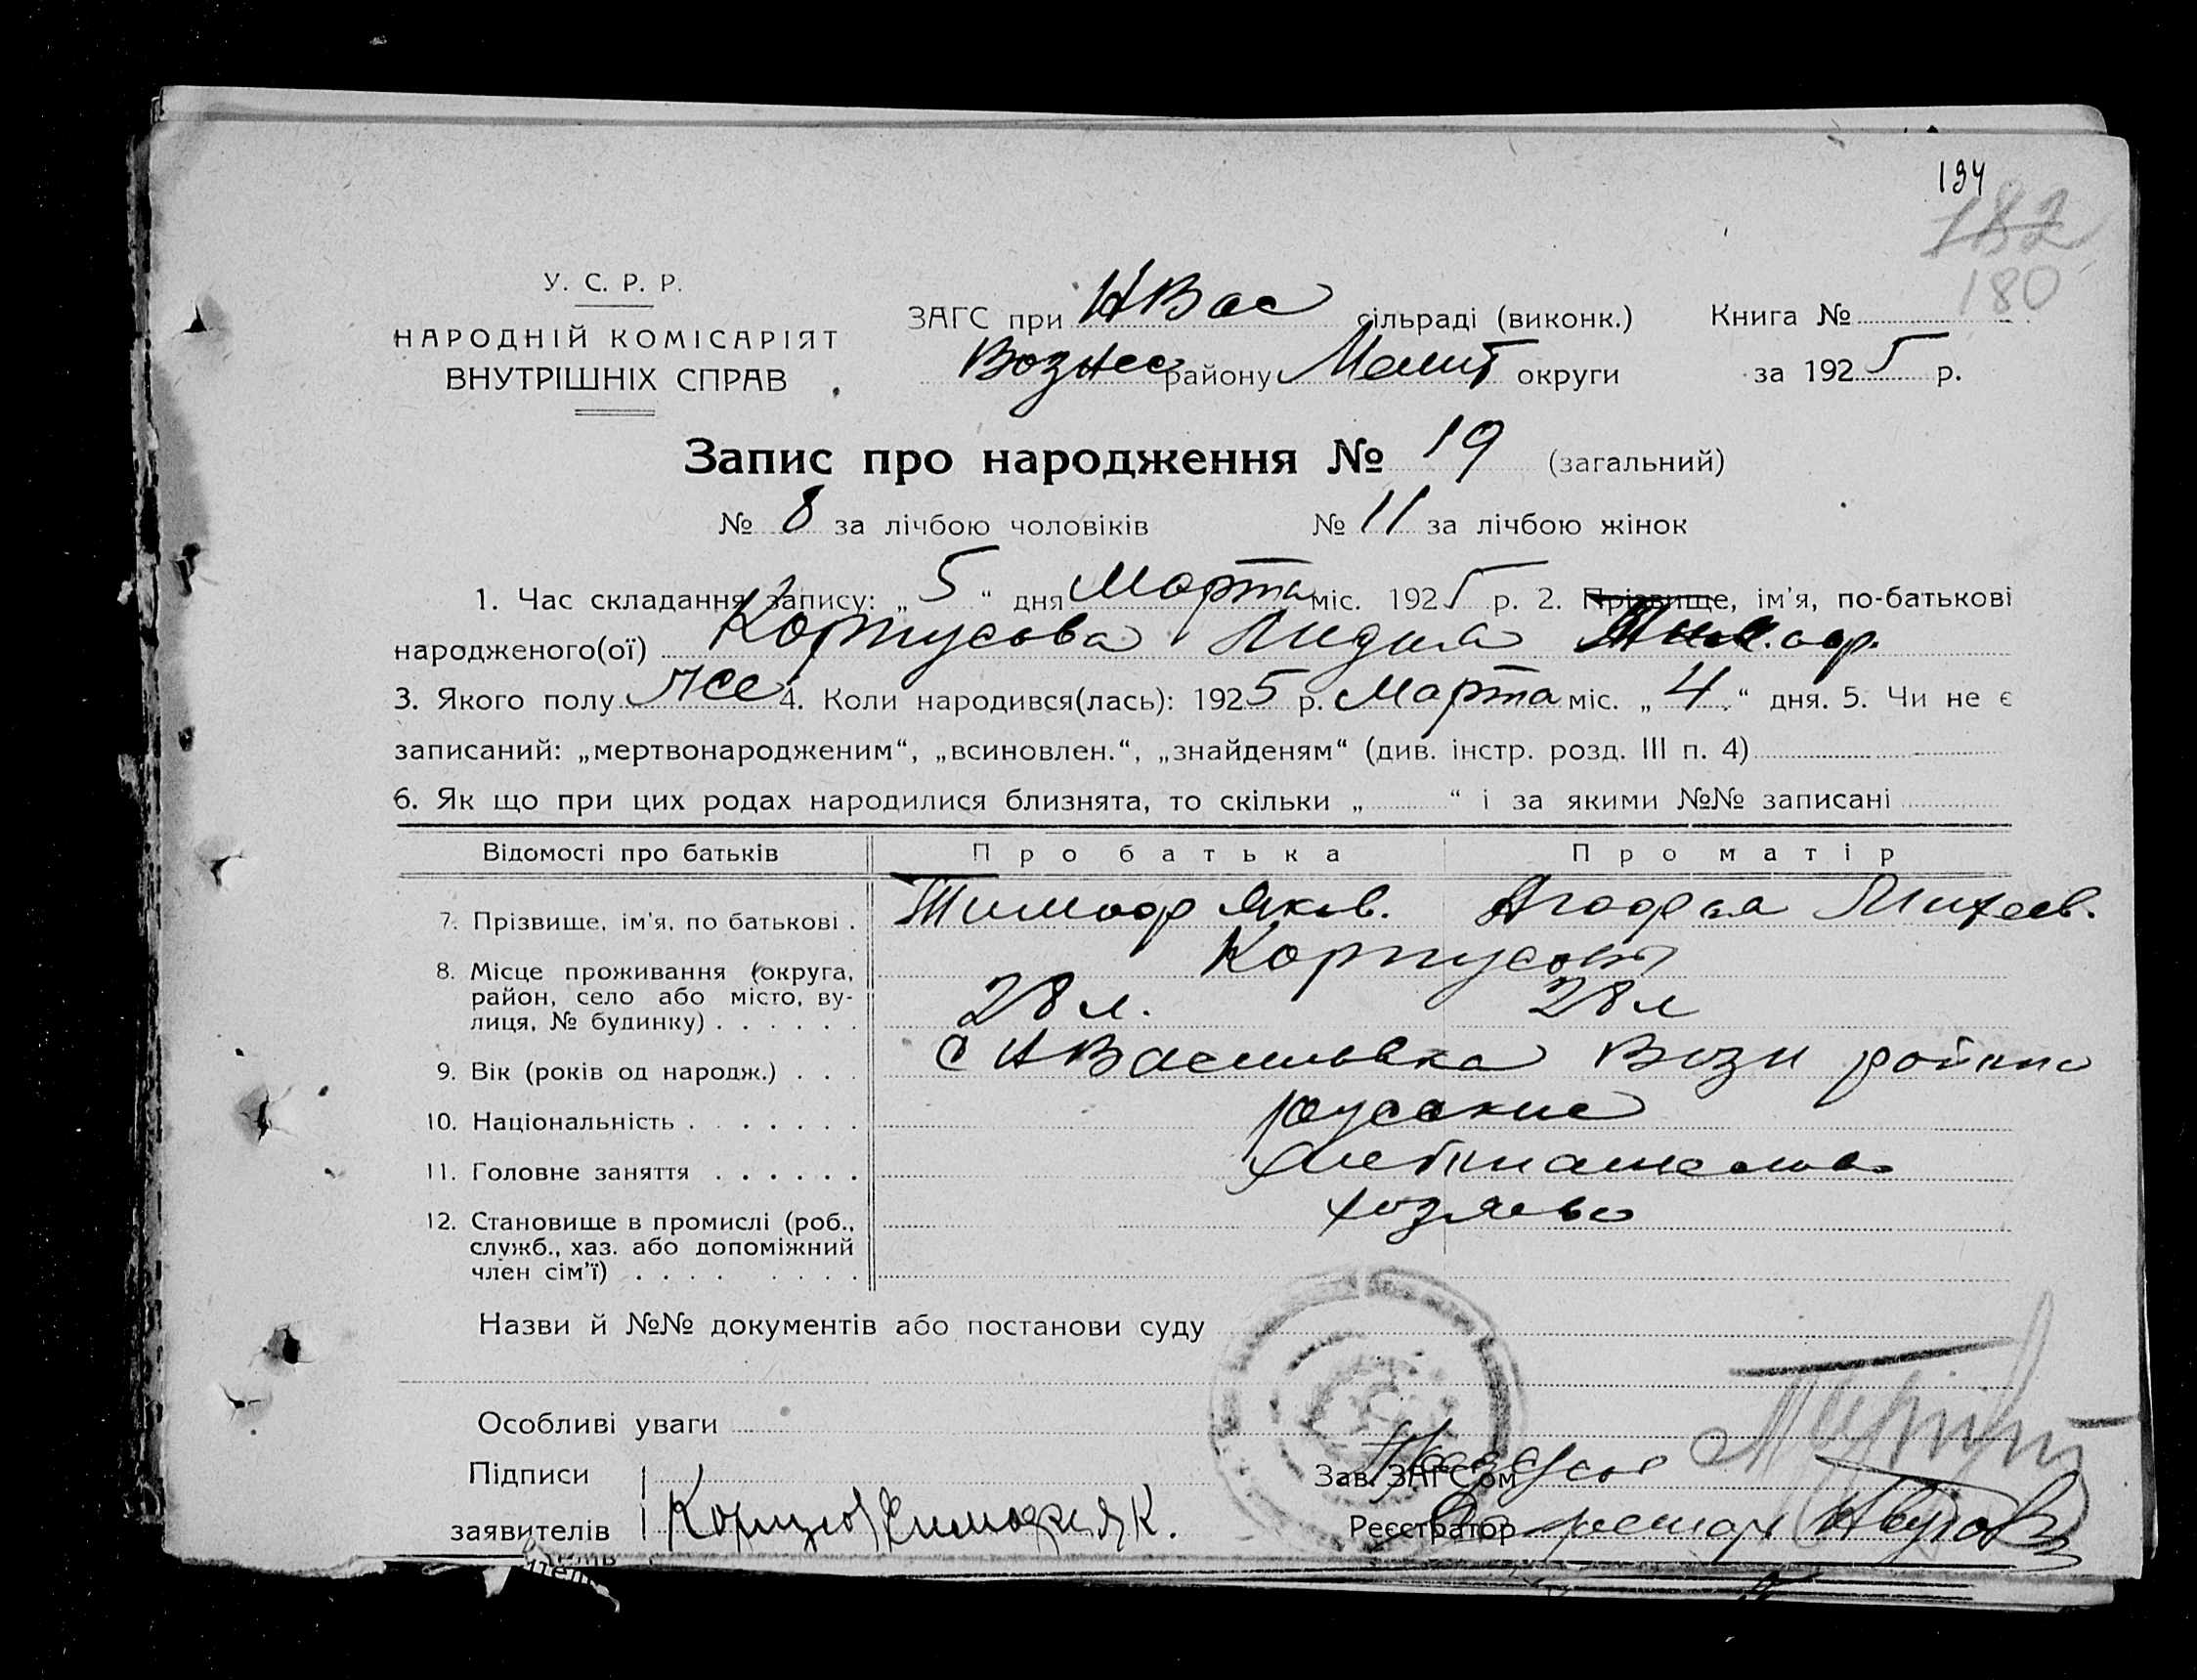 194
182
180
У. С. Р. Р.
НАРОДНІЙ КОМІСАРІЯТ
ВНУТРІШНІХ СПРАВ
ЗАГС при НВас сільраді (виконк.) Книга №
Вознес району Мелит округи за 1925 р.
Запис про народження № 19 (загальний)
№ 8 за лічбою чоловіків № 11 за лічбою жінок
1. Час складання запису: „ 5 “ дня Марта міс. 1925 р. 2. Прізвище, ім'я, по-батькові
народженого(ої) Корпусова Лидия Тим.
3. Якого полу Же 4. Коли народився(лась): 1925 р. Марта міс. „ 4 “ дня. 5. Чи не є
записаний: „мертвонародженим“, „всиновлен.“, „знайденям“ (див. інстр. розд. III п. 4)
6. Як що при цих родах народилися близнята, то скільки „ “ і за якими №№ записані
Відомості про батьків Про батька Про матір
7. Прізвище, ім'я, по батькові . Тимоф Яков. Агафья Михеев.
Корпусовы
8. Місце проживання (округа,
район, село або місто, ву-
лиця, № будинку) . . . . . . 28 л. 28 л
9. Вік (років од народж.) . . . с НВасильевка Возн района
10. Національність . . . . . . . русские
11. Головне заняття . . . . . . хлебопашество
12. Становище в промислі (роб., хозяева
служб., хаз. або допоміжний
член сім'ї) . . . . . . . .
Назви й №№ документів або постанови суду
Особливі уваги
Підписи Зав. ЗАГС'ом
заявителів Корпусов Тимофей Як. Реєстратор